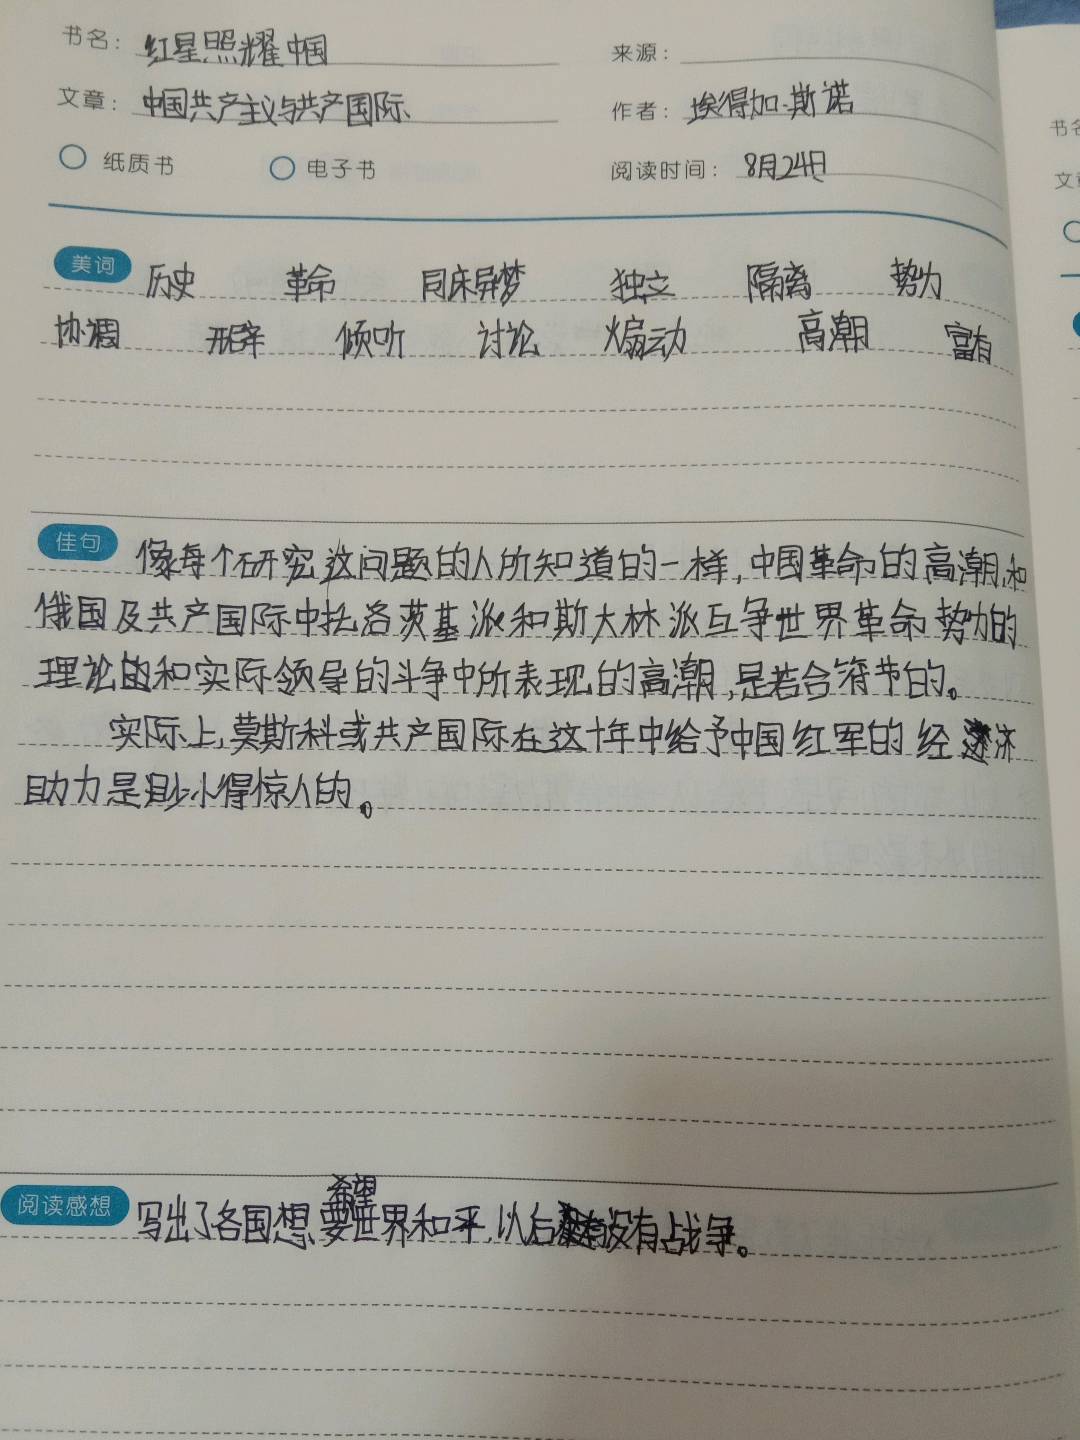 书名：红星照耀中国 来源：
文章：中国共产主义与共产国际 作者：埃得加.斯诺
纸质书 电子书 阅读时间：8月24日
美词 历史 革命 同床异梦 独立 隔离 势力
协调 开辟 倾听 讨论 煽动 高潮 富有
佳句 像每个研究这问题的人所知道的一样，中国革命的高潮，和
俄国及共产国际中托洛茨基派和斯大林派互争世界革命势力的
理论的和实际领导的斗争中所表现的高潮，是若合符节的。
实际上，莫斯科或共产国际在这十年中给予中国红军的经济
助力是少小得惊人的。
阅读感想 写出了各国想要希望世界和平，以后没有战争。
书名
文章